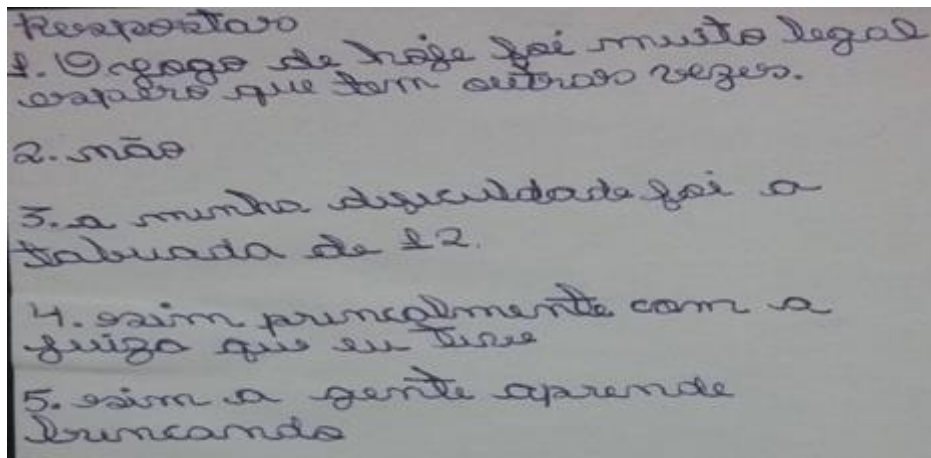 Respostas
1. O gogo de hoje foi muito legal
espero que tem outras vezes.
2. não
3. a minha dificuldade foi a
tabuada de 12.
4. sim princalmente com a
juiza que eu tive
5. sim a gente aprende
brincando